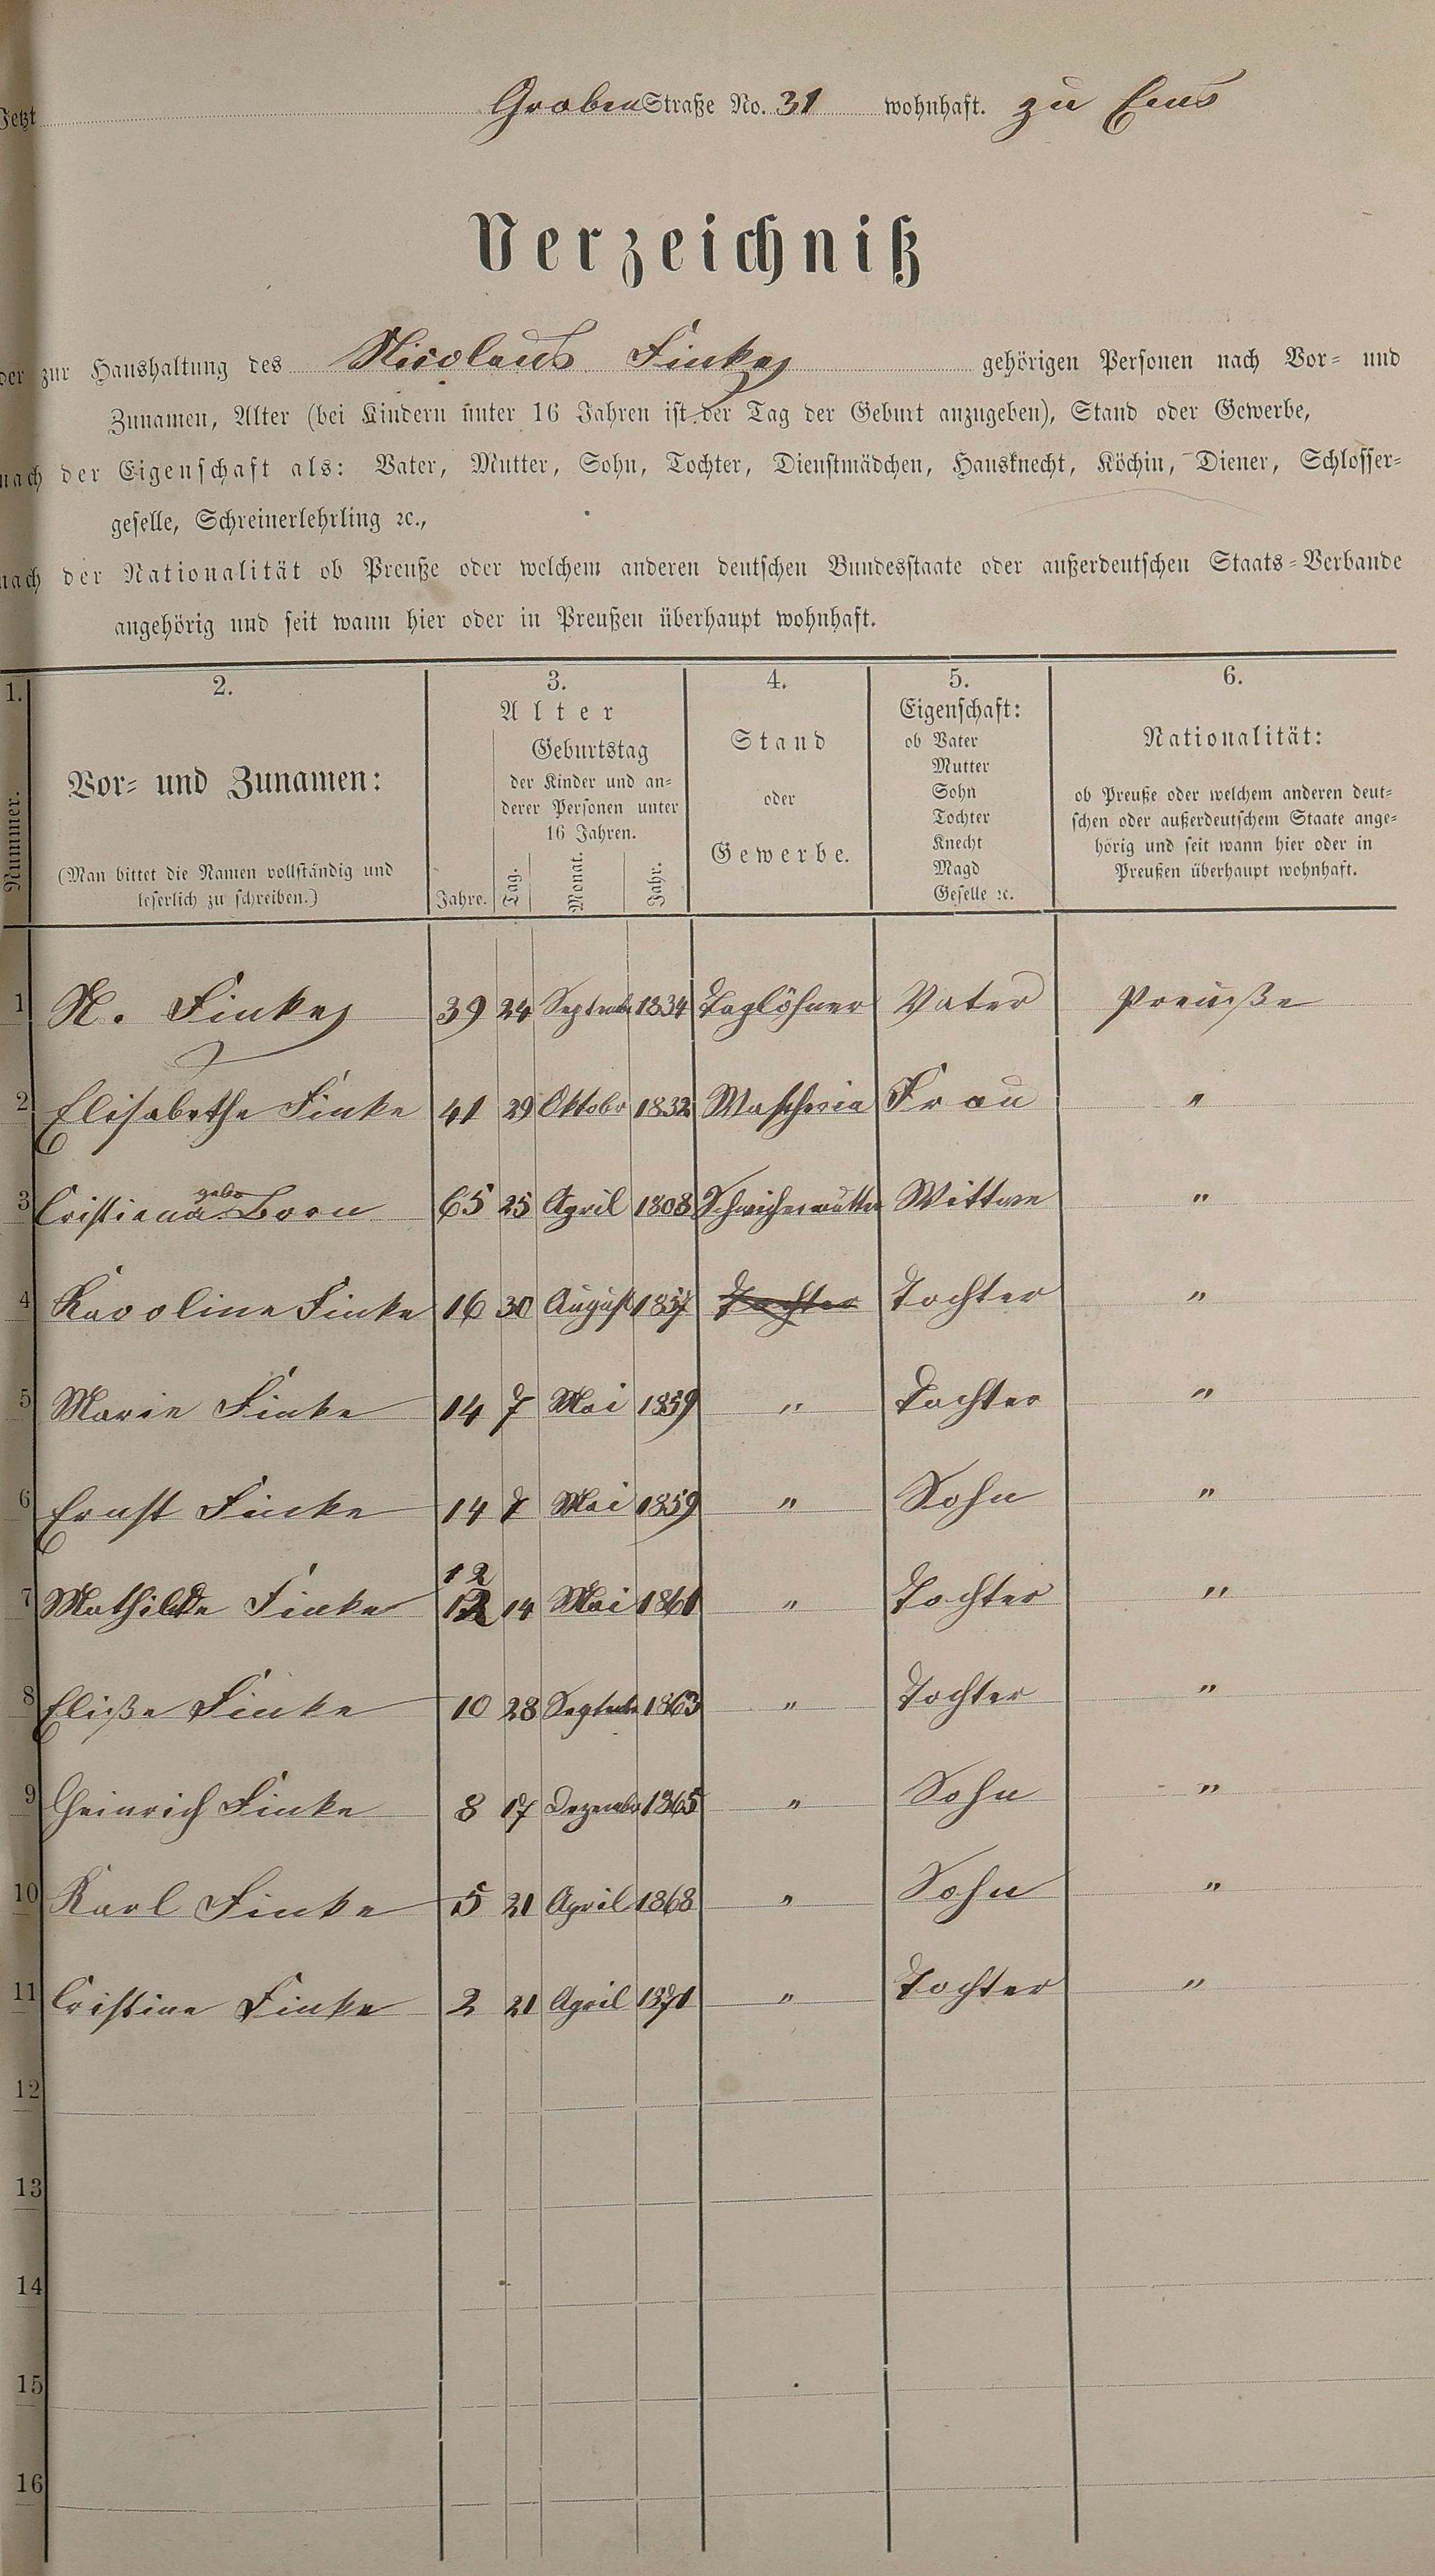 Jetzt Graben Straße No. 31 wohnhaft. zu Ems
Verzeichniß
der zur Haushaltung des Nicolaus Finke gehörigen Personen nach Vor- und
Zunamen, Alter (bei Kindern unter 16 Jahren ist der Tag der Geburt anzugeben), Stand oder Gewerbe,
nach der Eigenschaft als: Vater, Mutter, Sohn, Tochter, Dienstmädchen, Hausknecht, Köchin, Diener, Schlosser-
geselle, Schreinerlehrling ꝛc.,
nach der Nationalität ob Preuße oder welchem anderen deutschen Bundesstaate oder außerdeutschen Staats-Verbande
angehörig und seit wann hier oder in Preußen überhaupt wohnhaft.
1.
Nummer.
2.
Vor- und Zunamen:
(Man bittet die Namen vollständig und
leserlich zu schreiben.)
3.
Alter
Jahre.
Geburtstag
der Kinder und an-
derer Personen unter
16 Jahren.
Tag.
Monat.
Jahr.
4.
Stand
oder
Gewerbe.
5.
Eigenschaft:
ob Vater
Mutter
Sohn
Tochter
Knecht
Magd
Geselle ꝛc.
6.
Nationalität:
ob Preuße oder welchem anderen deut-
schen oder außerdeutschem Staate ange-
hörig und seit wann hier oder in
Preußen überhaupt wohnhaft.
1 N. Finke 39 24 September 1834 Taglöhner Vater Preuße
2 Elisabethe Finke 41 29 Oktober 1832 Wascherin Frau "
3 Cristiana geb. Born 65 25 April 1808 Schwiehermutter Wittwe "
4 Karoline Finke 16 30 August 1857 Tochter Tochter "
5 Marie Finke 14 7 Mai 1859 " Tochter "
6 Ernst Finke 14 7 Mai 1859 " Sohn "
12
7 Mathilde Finke 12 14 Mai 1861 " Tochter "
8 Eliße Finke 10 28 September 1863 " Tochter "
9 Heinrich Finke 8 17 Dezember 1865 " Sohn "
10 Karl Finke 5 21 April 1868 " Sohn "
11 Cristine Finke 2 21 April 1871 " Tochter "
12
13
14
15
16